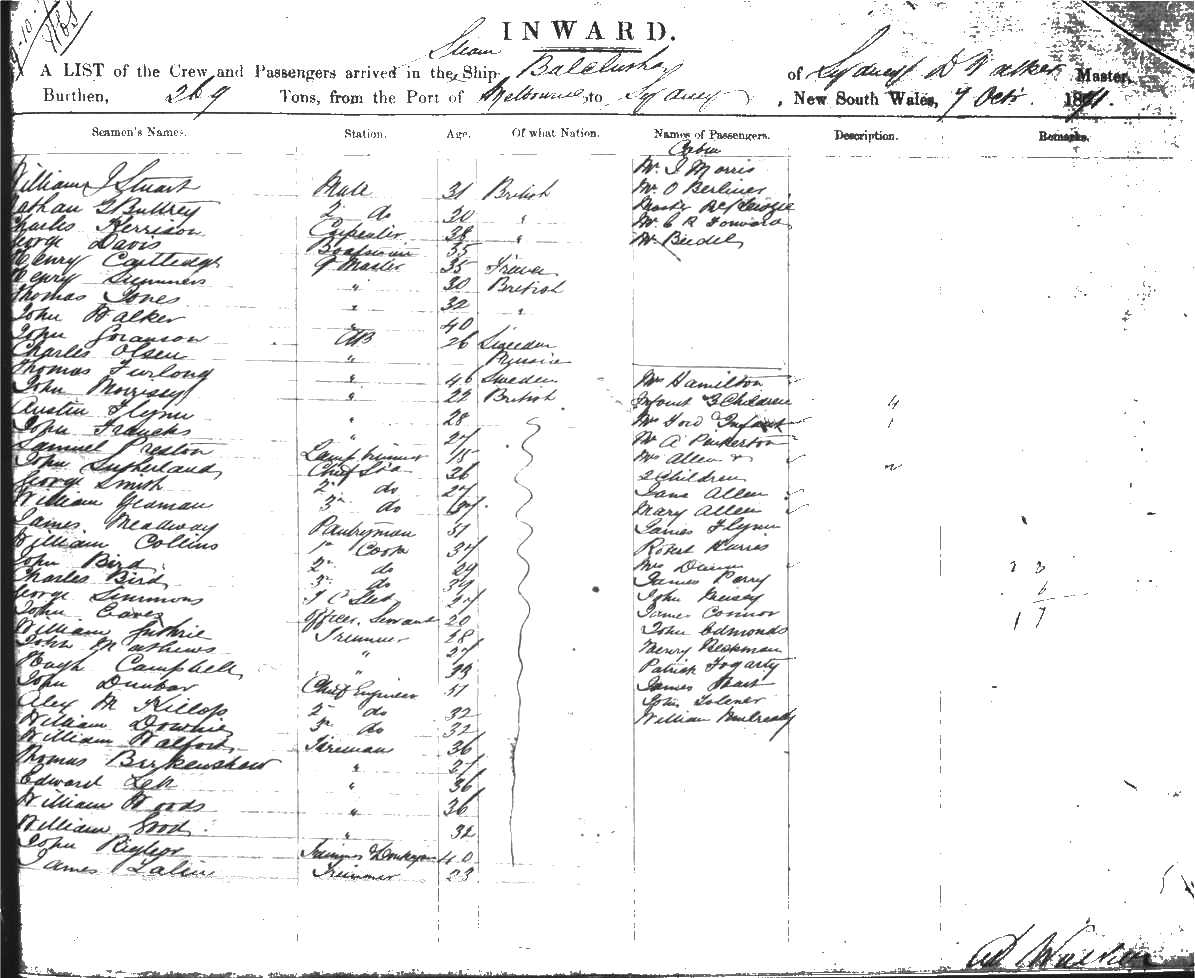 INWARD.
Steam
A LIST of the Crew and Passengers arrived in the Ship Balclutha of Sydney D Walker Master,
Burthen, 269 Tons, from the Port of Melbourne to Sydney, New South Wales, 7 Octr. 1871.
Seamen's Names. Station. Age. Of what Nation. Names of Passengers. Description. Remarks.
Cabin
Mr. J Morris
William J Stuart Mate 31 British Mr. O Berliner
Nathan G Buttrey 2nd do 30 " Master
Charles Kerrison Carpenter 38 " Mr. C R Forward
George Davis Boatswain 35 Mr
Henry Cartledge Q Master 35
Henry Summers " 30 British
Thomas Jones " 32 "
John Walker " 40
John Goranson AB 26 Sweden
Charles Olsen "
Thomas Furlong " 46 Sweden Mrs Hamilton
John Morrisey " 22 British Infant & 3 Children 4
Austin Flynn " 28 Mrs Ford & Infant 1
John Francks " 27 Mr A Pinkerton
Samuel Preston Lamp trimmer 18 Mrs Allen &
John Sutherland Chief Std 36 2 Children 2
George Smith 2nd do 27 Jane Allen
William Yeaman 3rd do Mary Allen
James Meadway Pantryman 51 James Flynn
William Collins 1st Cook 34 Robert Harris
John Bird 2nd do 29 Mrs 2 3
Charles Bird 3rd do 39 James Parry
George Simmons F C Std 27 John 6
John Eaves Officers Servant 20 James Connor 1 7
William Guthrie Trimmer 28 John Edmonds
John Mathews " 27 Henry Beckman
Hugh Campbell " 33 Patrick Fogarty
John Dunbar Chief Engineer 51 James Hart
Alex McKillop 2nd do 32 John
William Downie 3rd do 32 William
William Walford Fireman 36
Thomas Birkenshaw " 27
Edward Lek " 36
William Woods " 36
William Good " 32
John Trimmer & Donkeyman 40
James Trimmer 23
D Walker